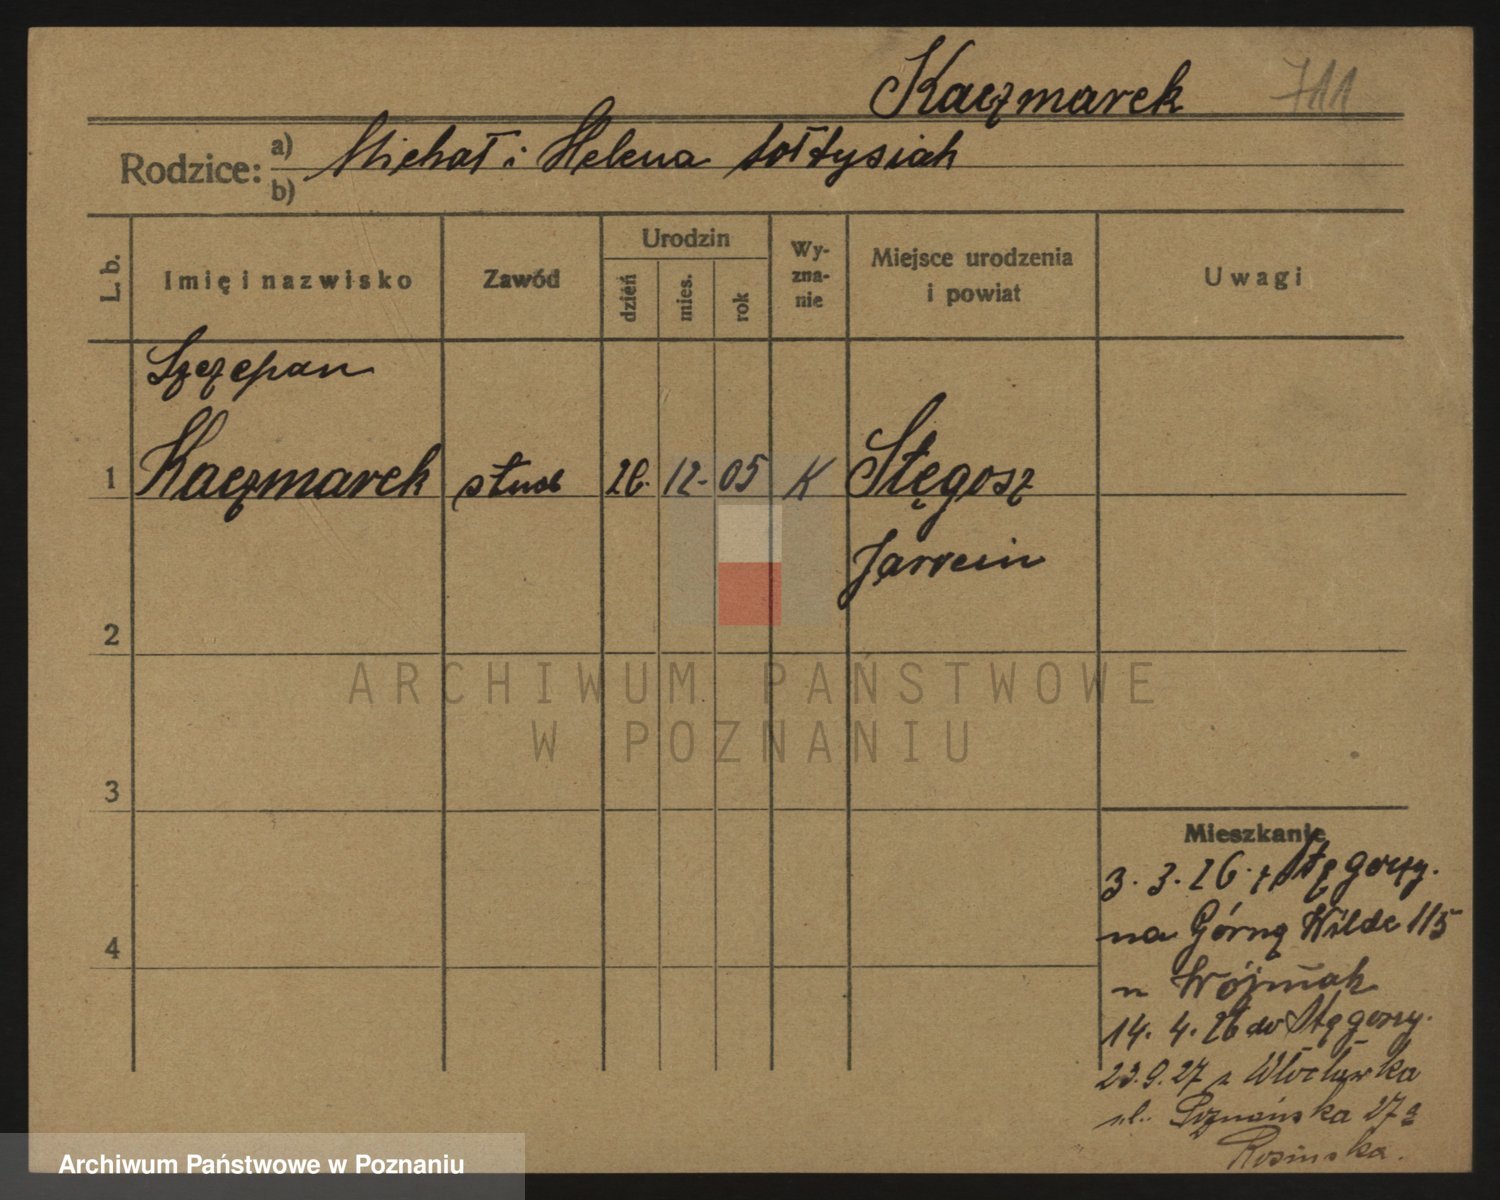 Kaczmarek 711
Rodzice: a) Michał i Helena Sołtysiak
b)
L. b.
Imię i nazwisko
Zawód
Urodzin
dzień
mies.
rok
Wy-
zna-
nie
Miejsce urodzenia
i powiat
Uwagi
Szczepan
1 Kaczmarek stud 26. 12. 05 K Stęgosz
Jarocin
2
3
4
Mieszkanie
3. 3. 26. z Stęgoszy.
na Górną Wilde 115
u Wójniak
14. 4. 26 do Stęgoszy.
23.9.27 z Włocławka
ul. Poznańska 27a
Rosińska.
ARCHIWUM PAŃSTWOWE
W POZNANIU
Archiwum Państwowe w Poznaniu